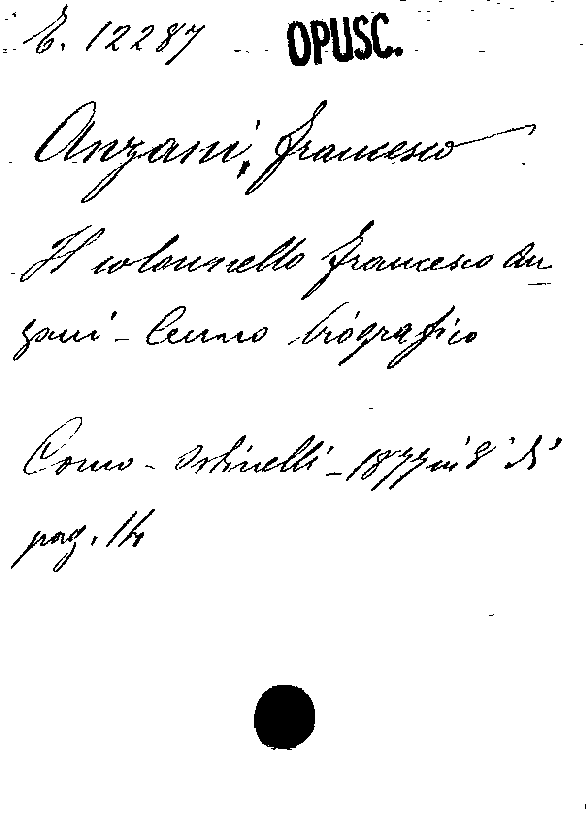 E. 12287 OPUSC.
Anzani, Francesco
Il colonnello Francesco An
zani - Cenno biografico
Como - Ostinelli - 1877 in 8° di
pag. 14